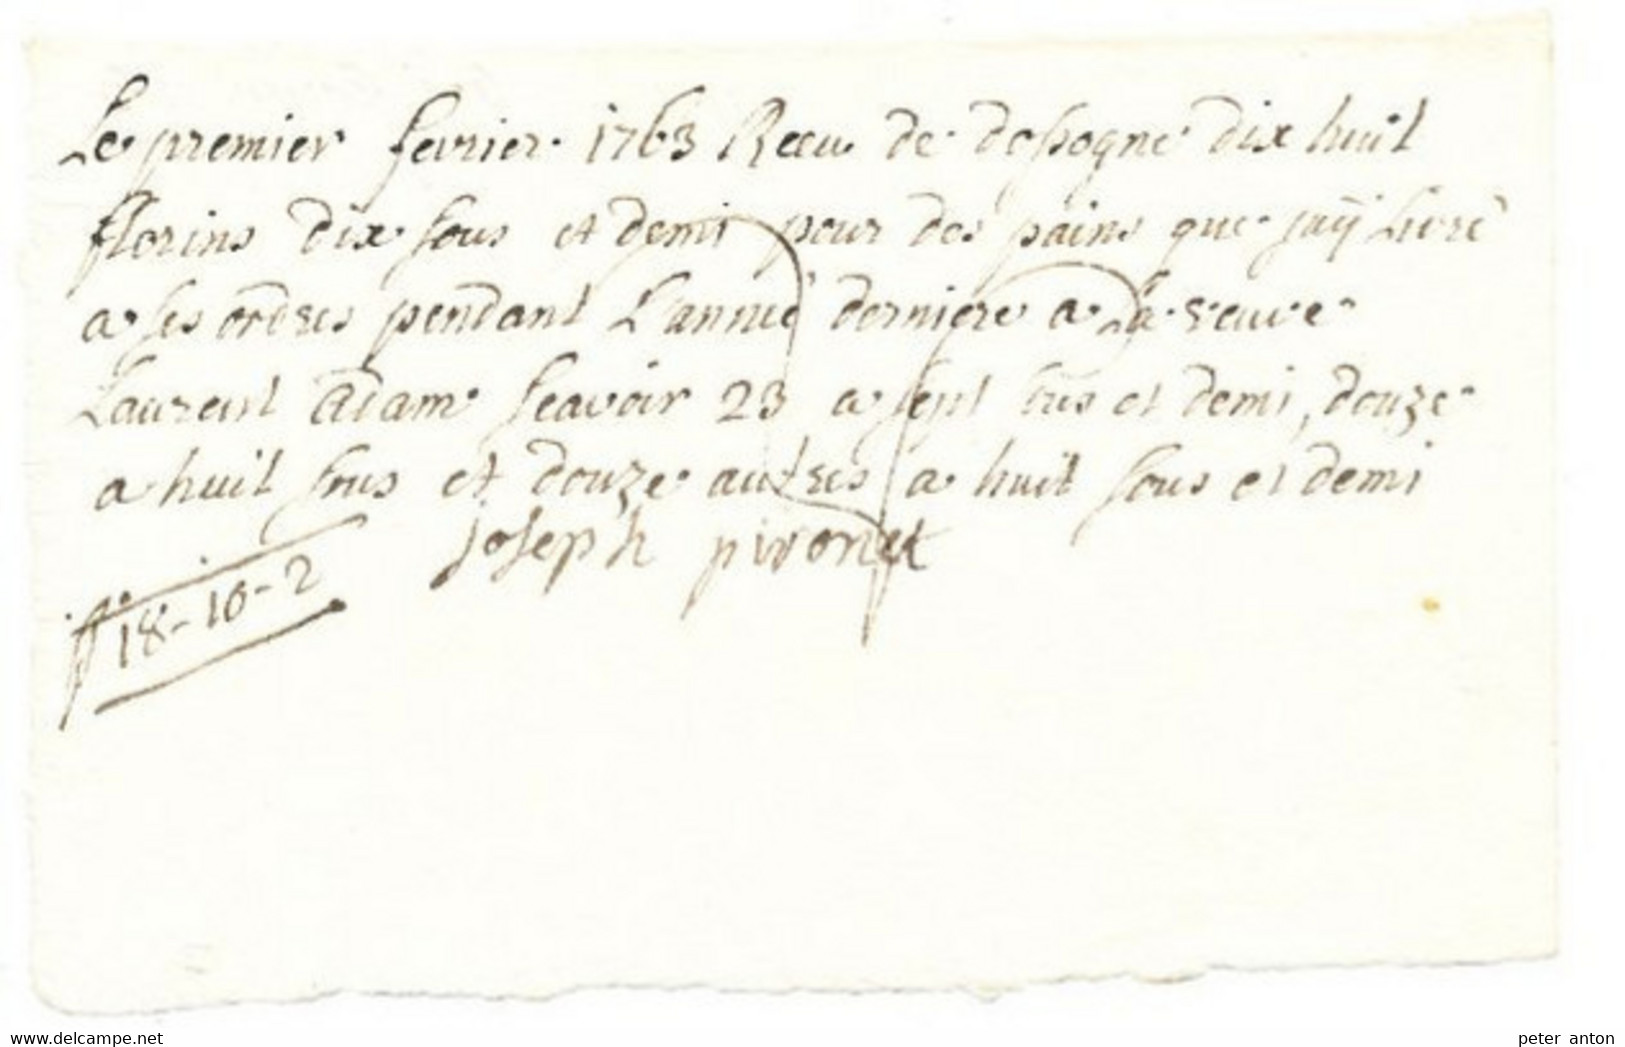 Le premier fevrier 1763 Recu de dossogne dix huit
florins dix sous et demi pour des pains que jaÿ Livré
a ses ordres pendant L'anneé derniere a La veuve
Laurent adam scavoir 23 a sept sous et demi, douze
a huit sous et douze autres a huit sous et demi
joseph pironet
ff 18-10-2
delcampe.net
peter anton